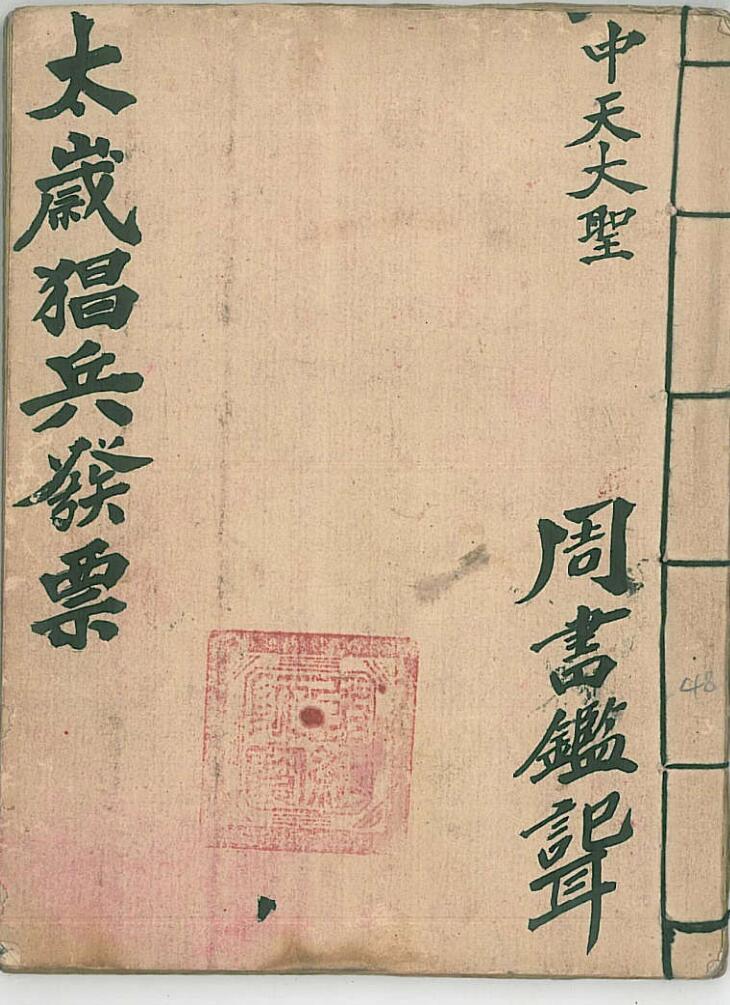 中天大聖
周書鑑記
太歲猖兵發票
48